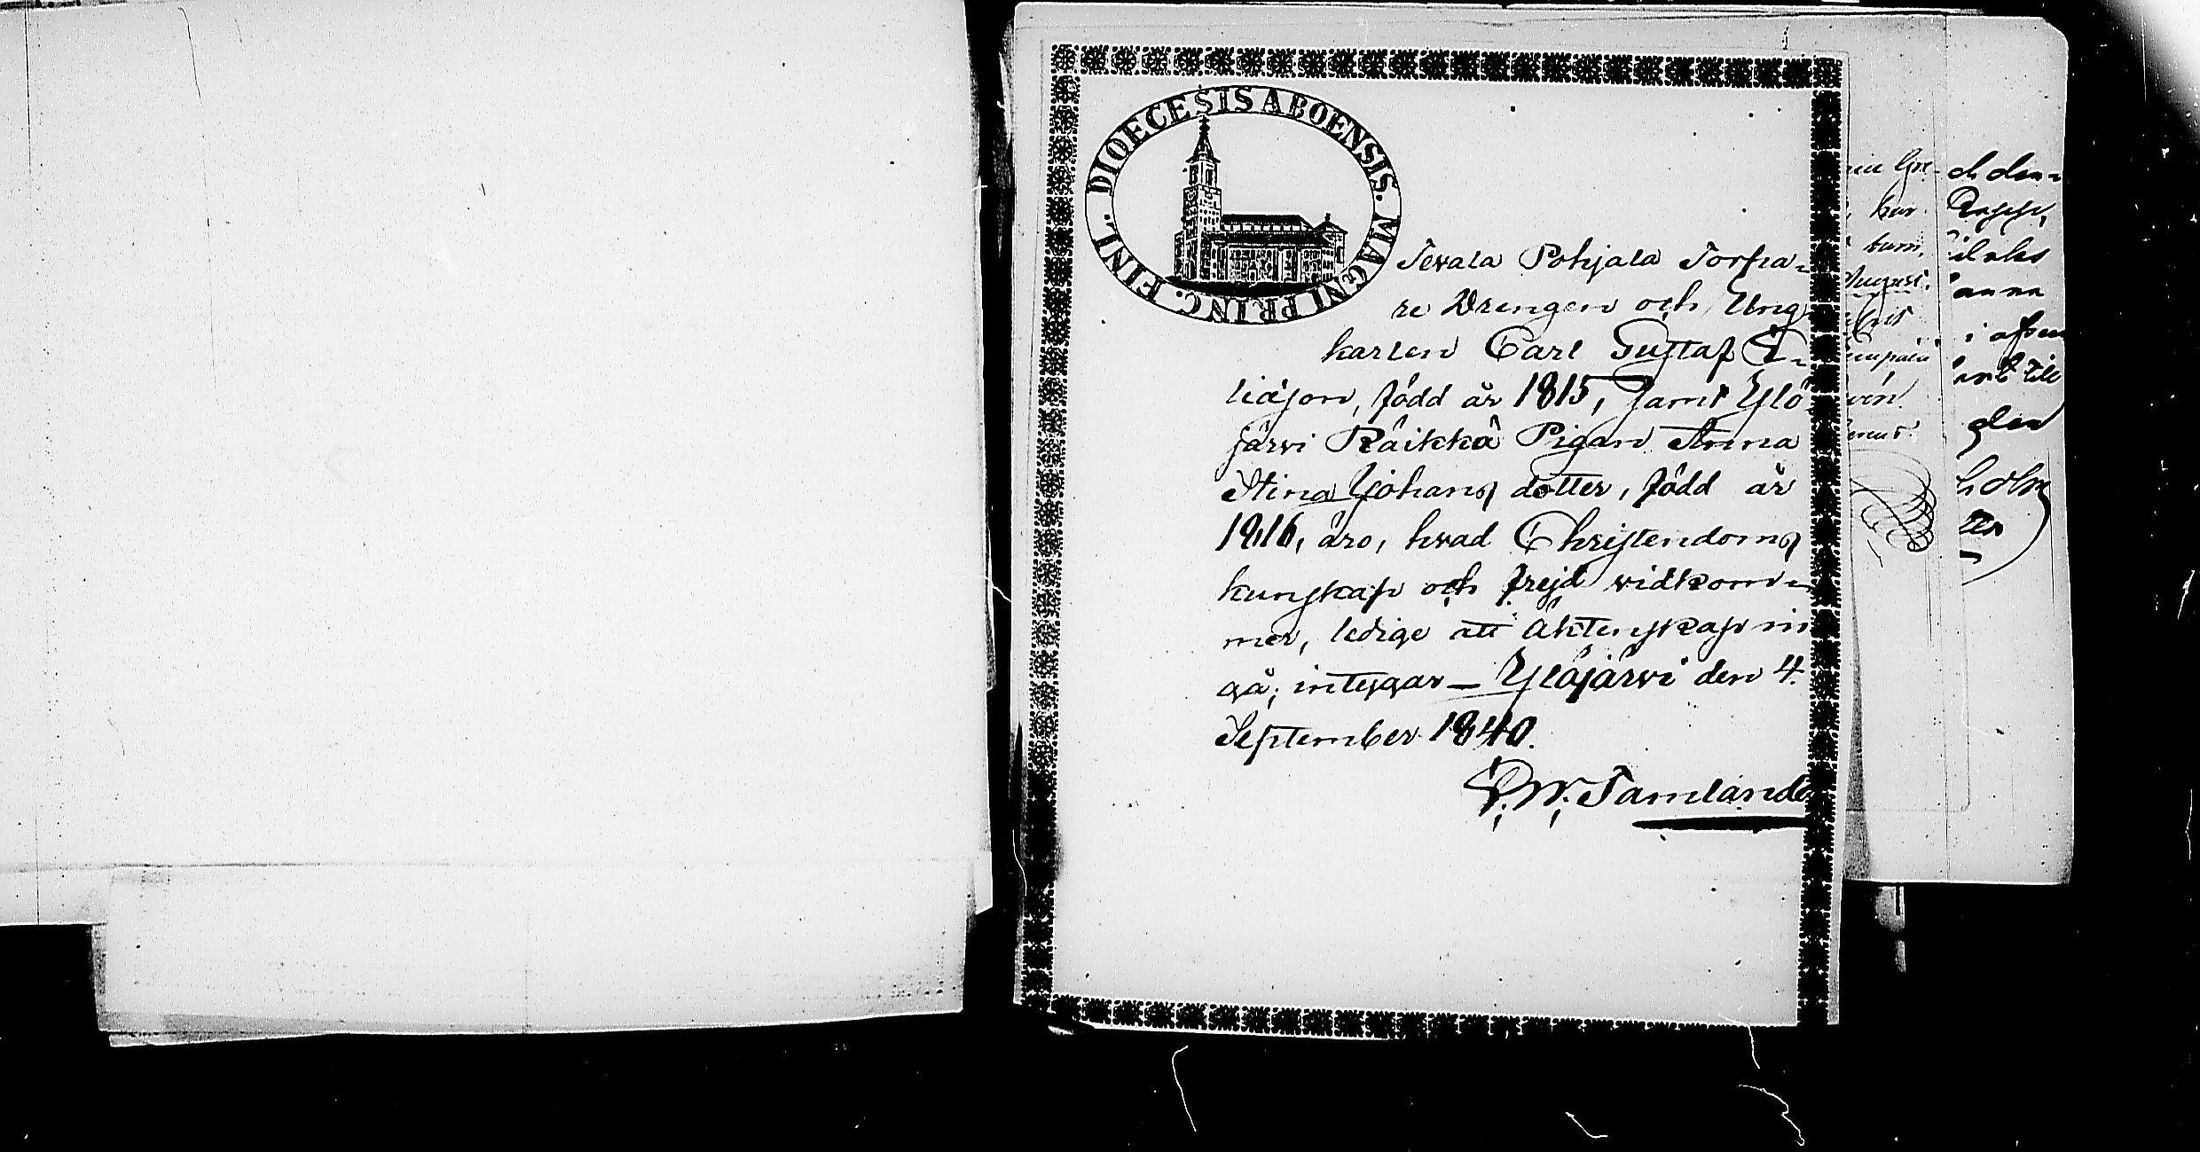 DIOECESIS ABOENSIS. MAGNI PRINC. FINL.
Tevala Pohjala Torpa-
re Drengen och Ung
karlen Carl Gustaf E-
liaſon, född år 1815, ſamt Ylö
järvi Räikkä Pigan Anna
Stina Johans dotter, född år
1816, äro, hvad Christendoms
kunſkap och frejd vidkom-
mer, ledige att äktenſkap in
gå; intygar — Ylöjärvi den 4.
September 1840.
Tamlande
den
till